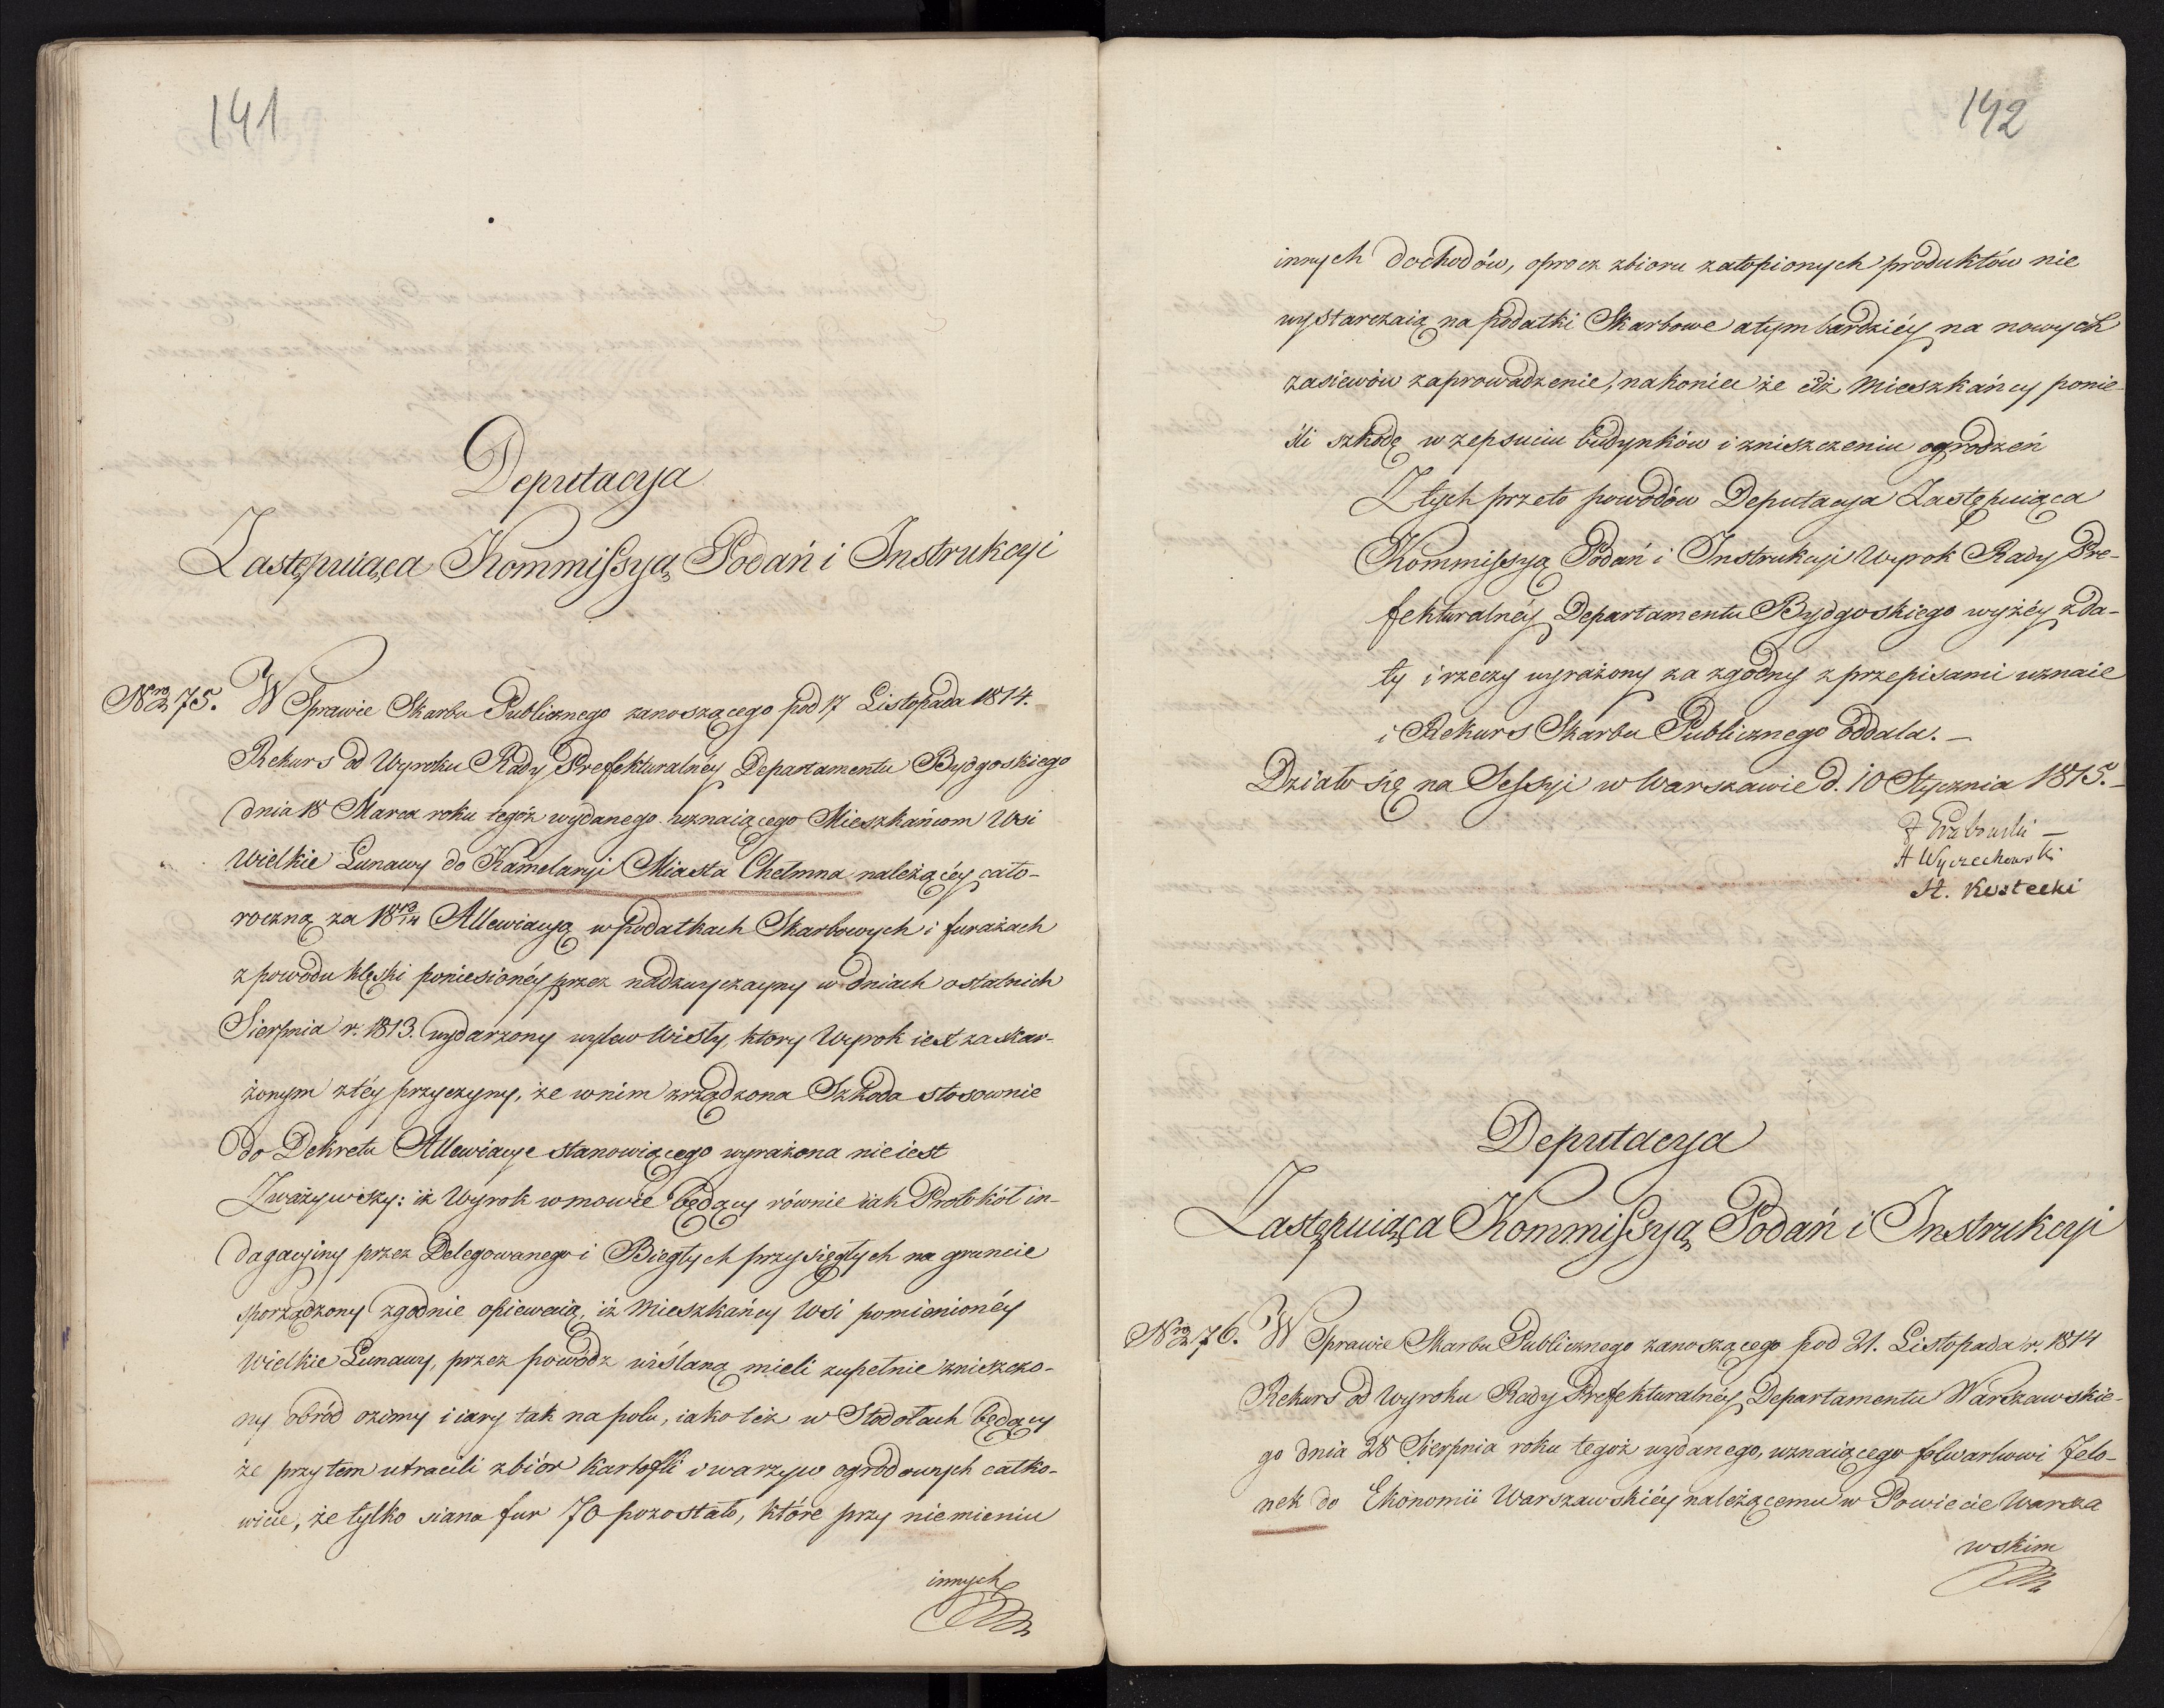 141
Deputacyja
Zastępuiąca Kommissyą Podań i Instrukcyi
Nro 75. W Sprawie Skarbu Publicznego zanoszącego pod 17 Listopada 1814.
Rekurs od Wyroku Rady Prefekturalnéy Departamentu Bydgoskiego
dnia 18 Marca roku tegóż wydanego uznaiącego Mieszkańcom Wsi
Wielkie Lunawy do Kamelaryi Miasta Chełmna należącéy cało-
roczną za 1813/14 Allewiacyą w podatkach Skarbowych i furażach
z powodu klęski poniesionéy przez nadzwyczayny w dniach ostatnich
Sierpnia r. 1813. wydarzony wylew Wisły, ktory Wyrok iest zaskar-
żonym z téy przyczyny, że w nim zrządzona Szkoda stosownie
do Dekretu Allewiacye stanowiącego wyrażona nie iest
Zważywszy: iż Wyrok w mowie będący równie iak Protokół in-
dagacyiny przez Delegowanego i Biegłych przysięgłych na gruncie
sporządzony zgodnie opiewaią, iż Mieszkańcy Wsi pomienionéy
Wielkie Lunawy, przez powódz wiślaną mieli zupełnie zniszczo-
ny obród ozimy i iary tak na polu, iako też w Stodołach będący
że przytem utracili zbiór kartofli i warzyw ogrodowych całko-
wicie, że tylko siana fur 70 pozostało, które przy niemieniu
innych
142
innych dochodów, oprocz zbioru zatopionych produktów nie
wystarczaią na podatki Skarbowe a tym bardziéy na nowych
zasiewów zaprowadzenie, nakoniec że ciż Mieszkańcy ponie-
śli szkodę w zepsuciu budynków i zniszczeniu ogrodzeń
Z tych przeto powodów Deputacyja Zastępuiąca
Kommissyą Podań i Instrukcyi Wyrok Rady Pre-
fekturalnéy Departamentu Bydgoskiego wyżéy z da-
ty i rzeczy wyrażony za zgodny z przepisami uznaie
i Rekurs Skarbu Publicznego oddala. —
Działo się na Sessyi w Warszawie d. 10 Stycznia 1815. —
A Wyczechowski
St. Kostecki
Deputacyja
Zastępuiąca Kommissyą Podań i Instrukcyi
Nro 76. W Sprawie Skarbu Publicznego zanoszącego pod 21. Listopada r. 1814
Rekurs od Wyroku Rady Prefekturalnéy Departamentu Warszawskie-
go dnia 28 Sierpnia roku tegoż wydanego, uznaiącego folwarkowi Jelo-
nek do Ekonomii Warszawskiéy należącemu w Powiecie Warsza
wskim